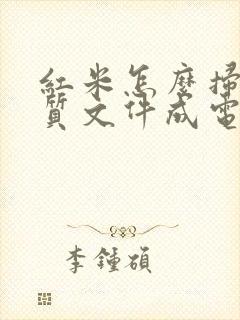 紅米怎麼掃
質文件成電
李鍾碩